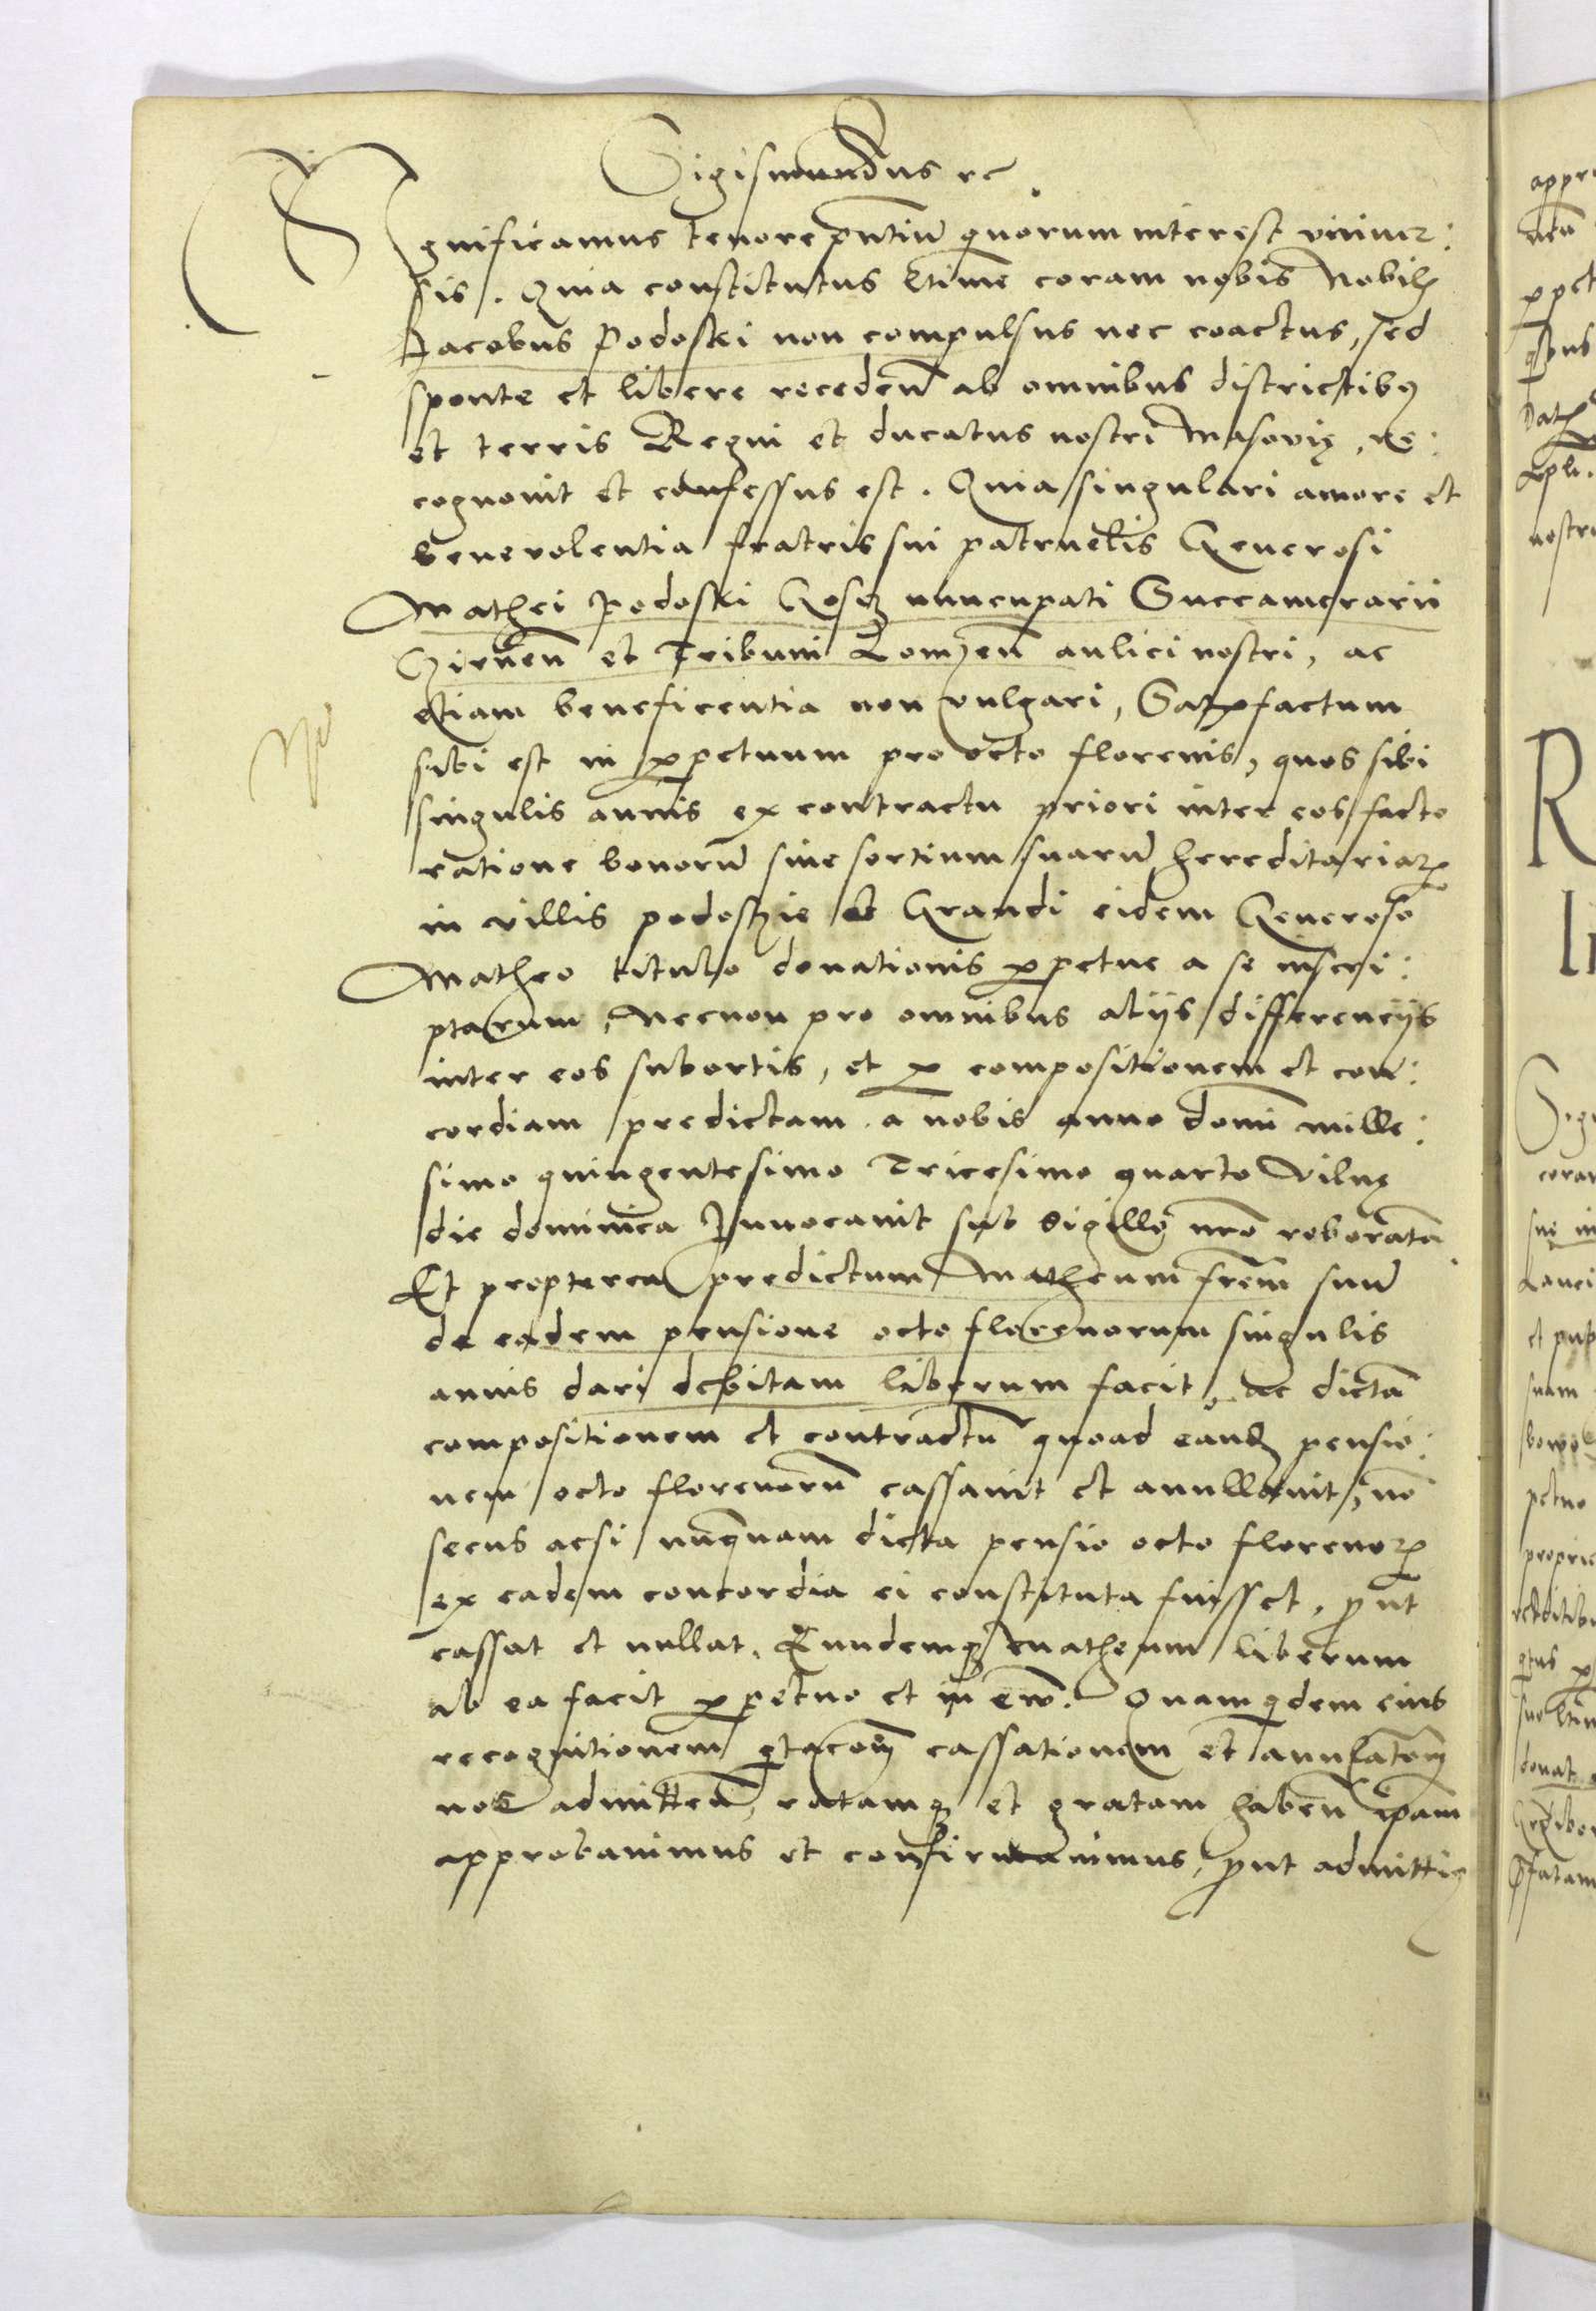 Sigismundus rc
Significamus tenore pñtiũ quorum interest vniuer:
sis. Quia constitutus ltime coram nobis Nobilis
Jacobus Podoski non compulsus nec coactus, sed
sponte et libere recedeñ ab omnibus districtibus
et terris Regni et ducatus nostri Masovię, re:
cognouit et confessus est. Quia singulari amore et
beneuolentia fratris sui patruelis Generosi
Mathei Podoski Gosz nuncupati Succamerarii
Cirneñ et Tribuni Lomzeñ aulici nostri, ac
etiam beneficentia non vulgari, Satisfactum
sibi est in perpetuum pro octo florenis, quos sibi
singulis annis ex contractu priori inter eos facto
ratione bonorũ siue sortium suarũ hereditariarum
in villis podoszie et Grandi eidem Generoso
Matheo titulo donationis perpetue a se inscri:
ptarum, Necnon pro omnibus alijs differencijs
inter eos subortis, et per compositionem et con:
cordiam predictam a nobis anno domi mille:
simo quingentesimo Tricesimo quarto Vilnę
die dominica Inuocauit sub sigillo nro roboratã
Et propterea predictum Matheum frem suũ
de eadem pensione octo florenorum singulis
annis dari debitam liberum facit, ac dictã
compositionem et contractũ quoad eandem pensio:
nem octo florenorũ cassauit et annullauit, nõ
secus acsi nunquam dicta pensio octo florenorum
ex eadem concordia ei constituta fuisset, prout
cassat et nullat, Eundemque Matheum liberum
ab ea facit perpetuo et in ewũ. Quamquidem eius
recognitionem quitacoem cassationem et annullatoem
nos admitteñ, ratamque et gratam habeñ ipam
approbauimus et confirmauimus, prout admittimus